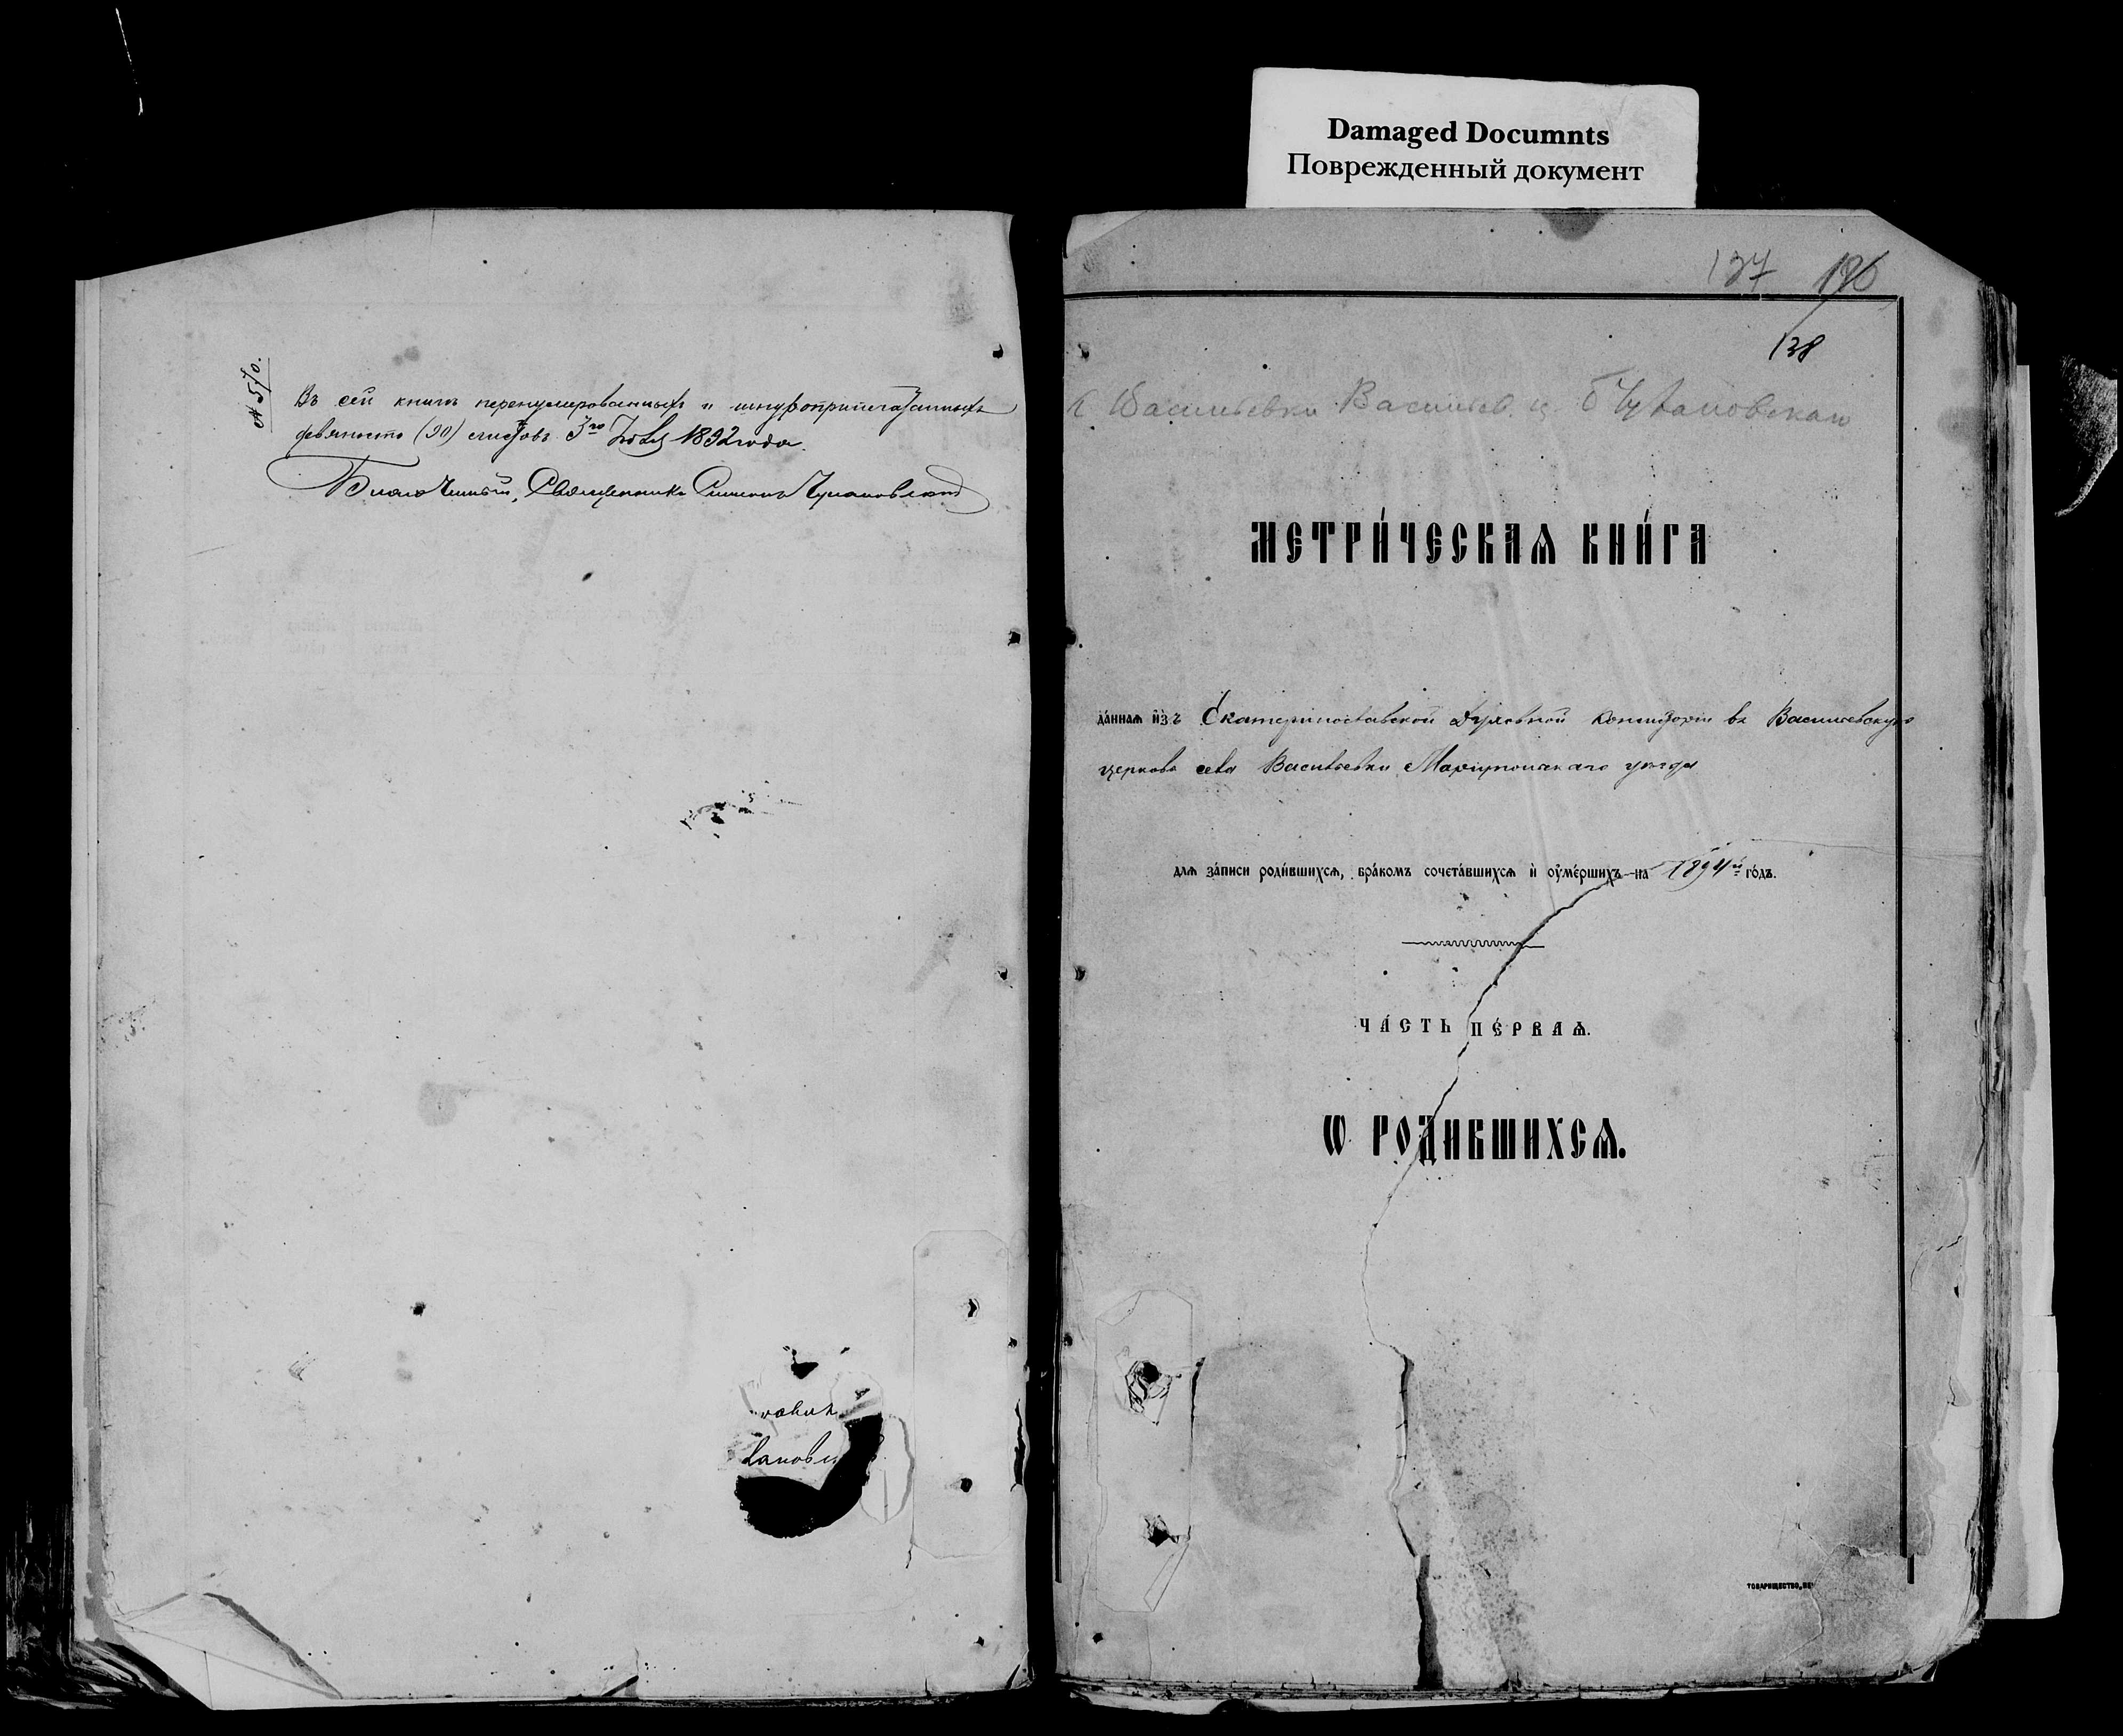 Damaged Documnts
Поврежденный документ
№ 570.
Въ сей книгѣ перенумерованныхъ и шнуроприпечатанныхъ
девяносто (90) листовъ. 3го 1892 года.
Благочинный, Священникъ Симеонъ
137 136
138
с Васильевки Васильев. ц.
МЕТРИ́ЧЕСКАѦ КНИ́ГА
да́ннаѧ и҆зъ Екатеринославской Духовной Консисторіи въ Васильевскую
церковь села Васильевки Маріупольскаго уѣзда
длѧ за́писи роди́вшихсѧ, бра́комъ сочета́вшихсѧ и҆ оу҆ме́ршихъ на 1894й го́дъ.
ЧА́СТЬ ПЕ́РВАѦ.
Ѡ РОДИВШИХСѦ.
ТОВАРИЩЕСТВО